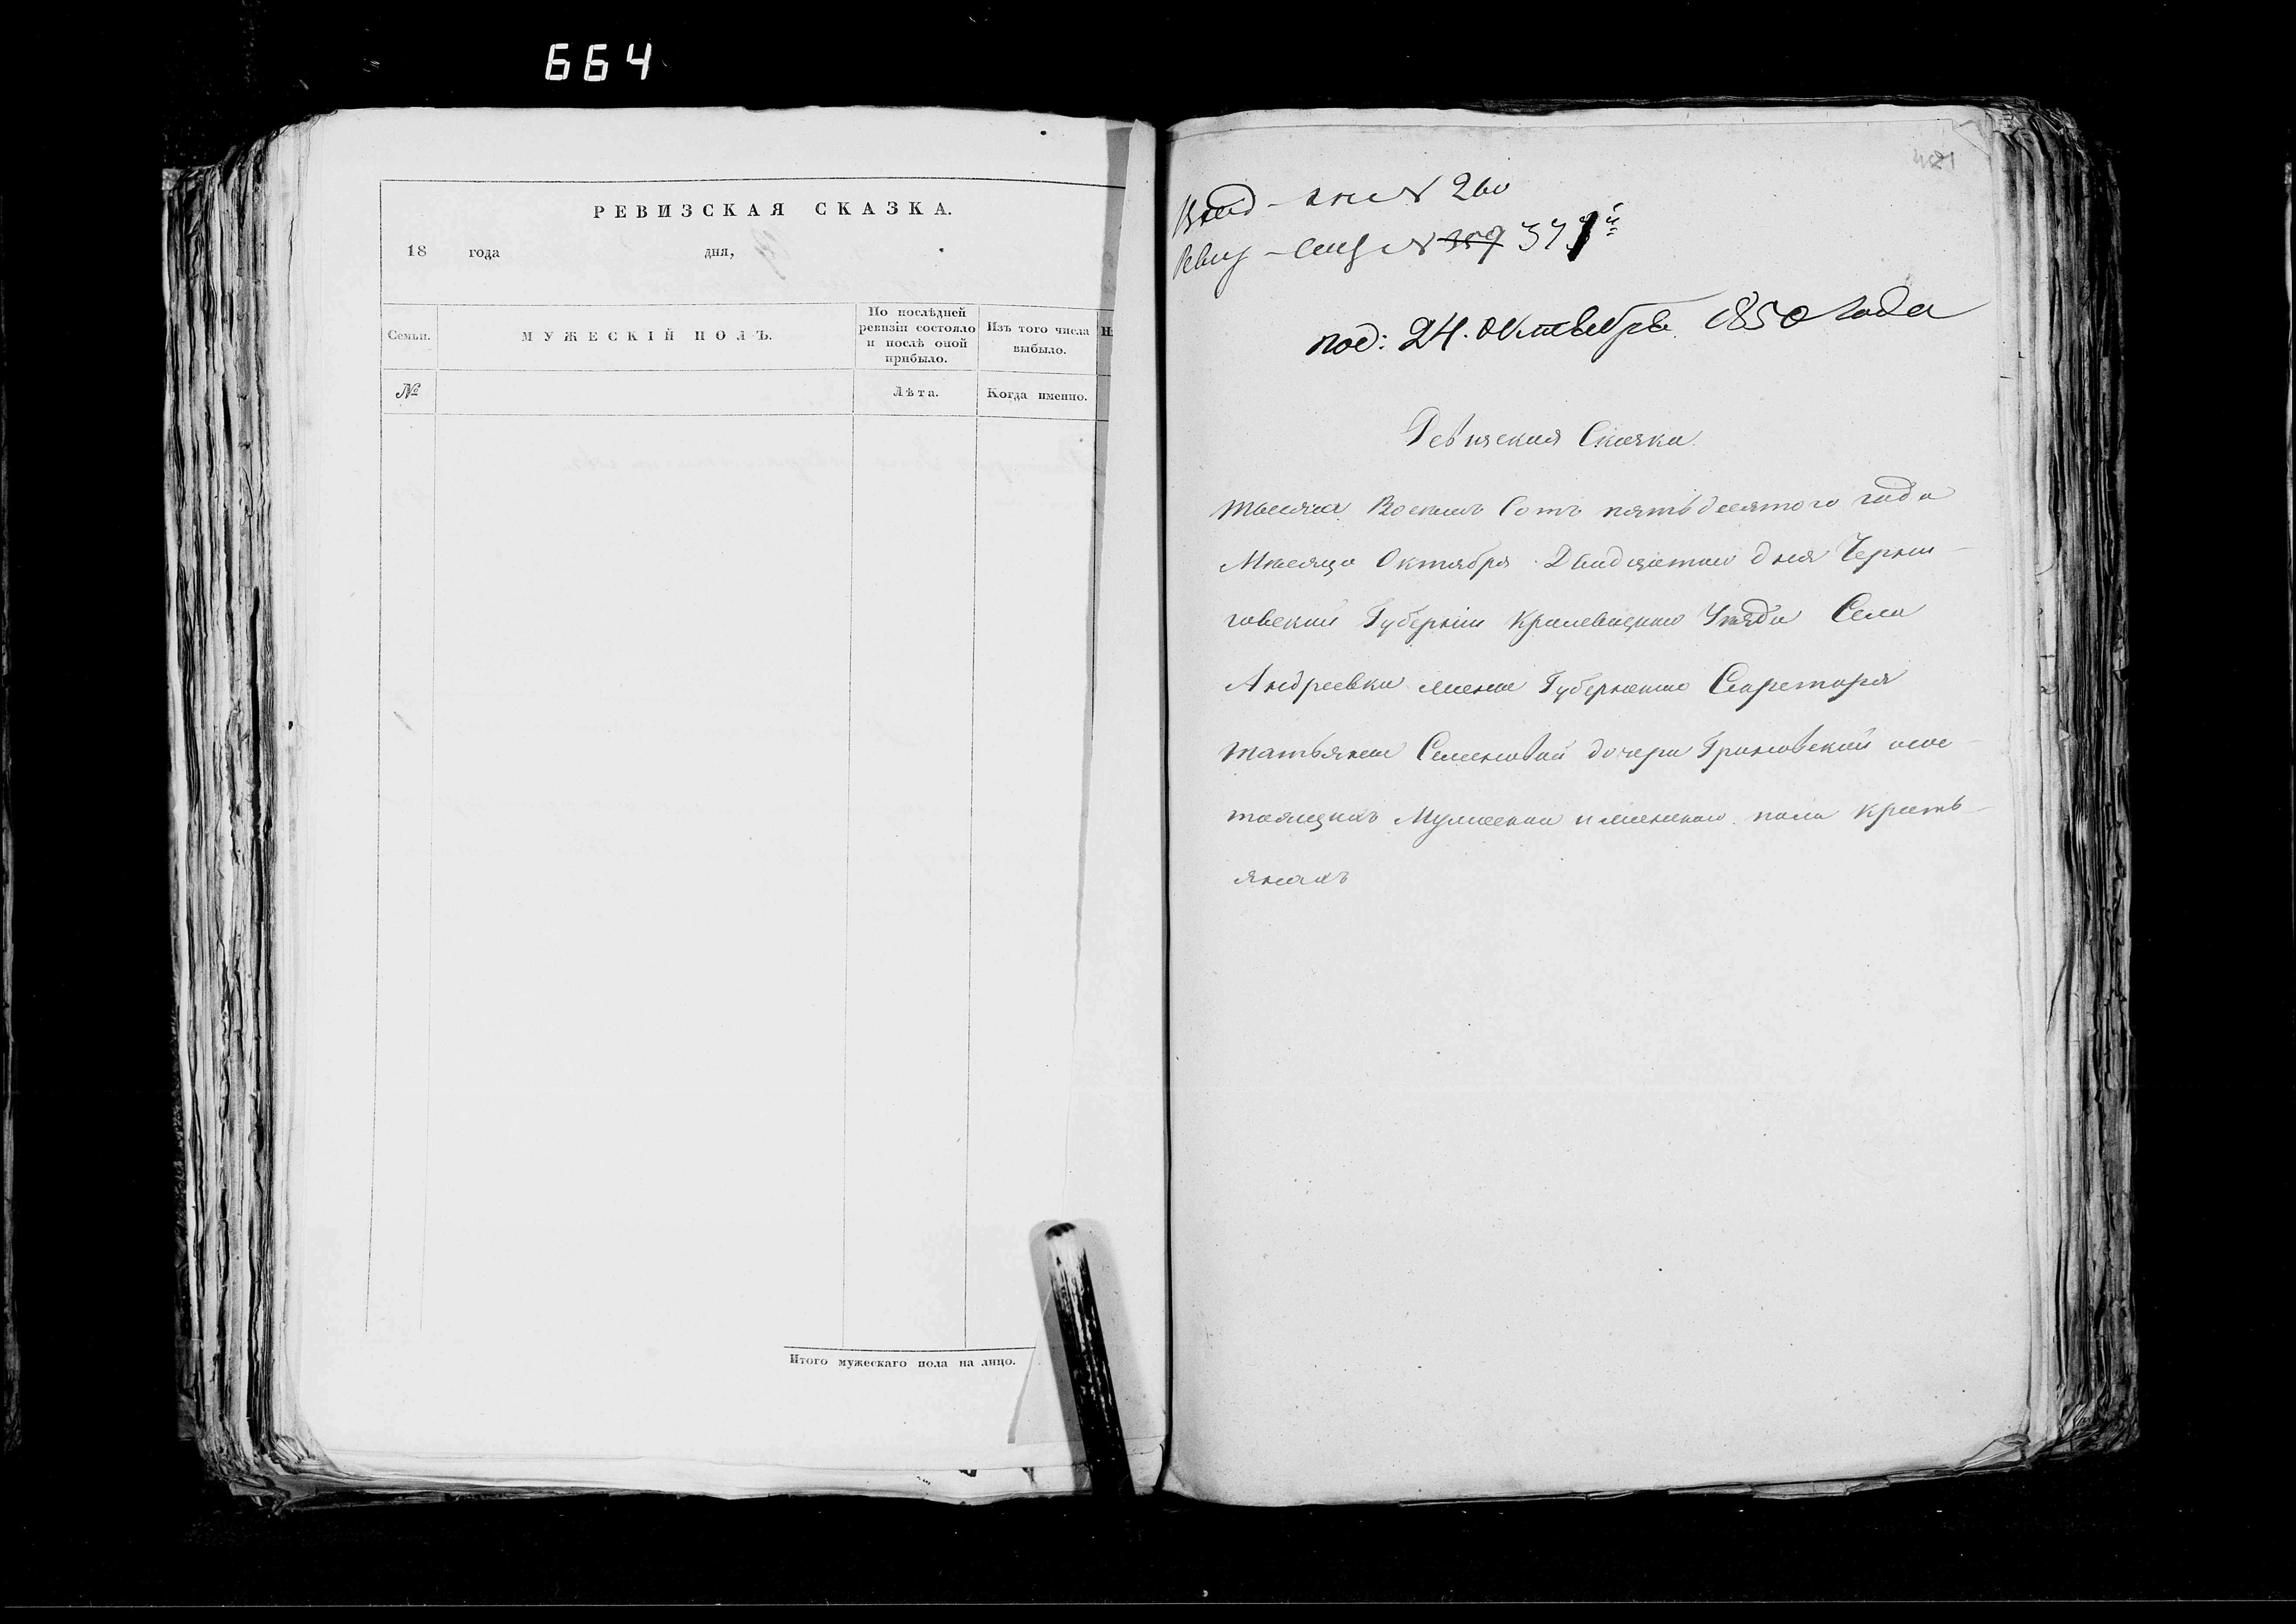 664
РЕВИЗСКАЯ СКАЗКА.
18 года дня,
Семьи.
МУЖЕСКІЙ ПОЛЪ.
По послѣдней ревизіи состояло и послѣ оной прибыло.
Изъ того числа выбыло.
Н
№
Лѣта.
Когда именно.
Итого мужескаго пола на лицо.
№ 260
№ 359 37
под: 24. Октебре 1850 года
Ревизская Сказка
тысяча Восемь Сотъ пятьдесятого года
Мѣсяца Октября Двадцятого дня Черни-
говской Губерніи Кролевецкого Уѣзда Села
Андреевки жены Губернского Секретаря
татьяны Семеновой дочери Грановской осос-
тоящихъ Мужеска и женскаго пола Кресть-
янахъ